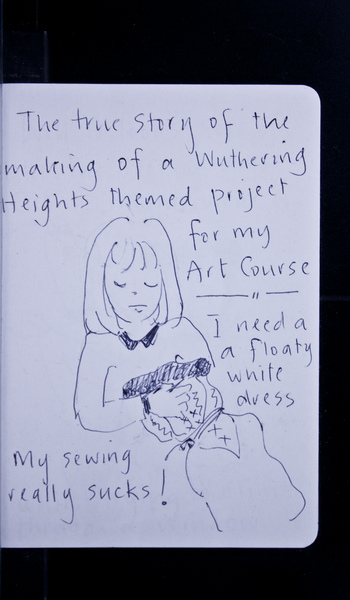 The true story of the
making of a Wuthering
Heights themed project
for my
Art Course
I need a
a floaty
white
dress
My sewing
really sucks!